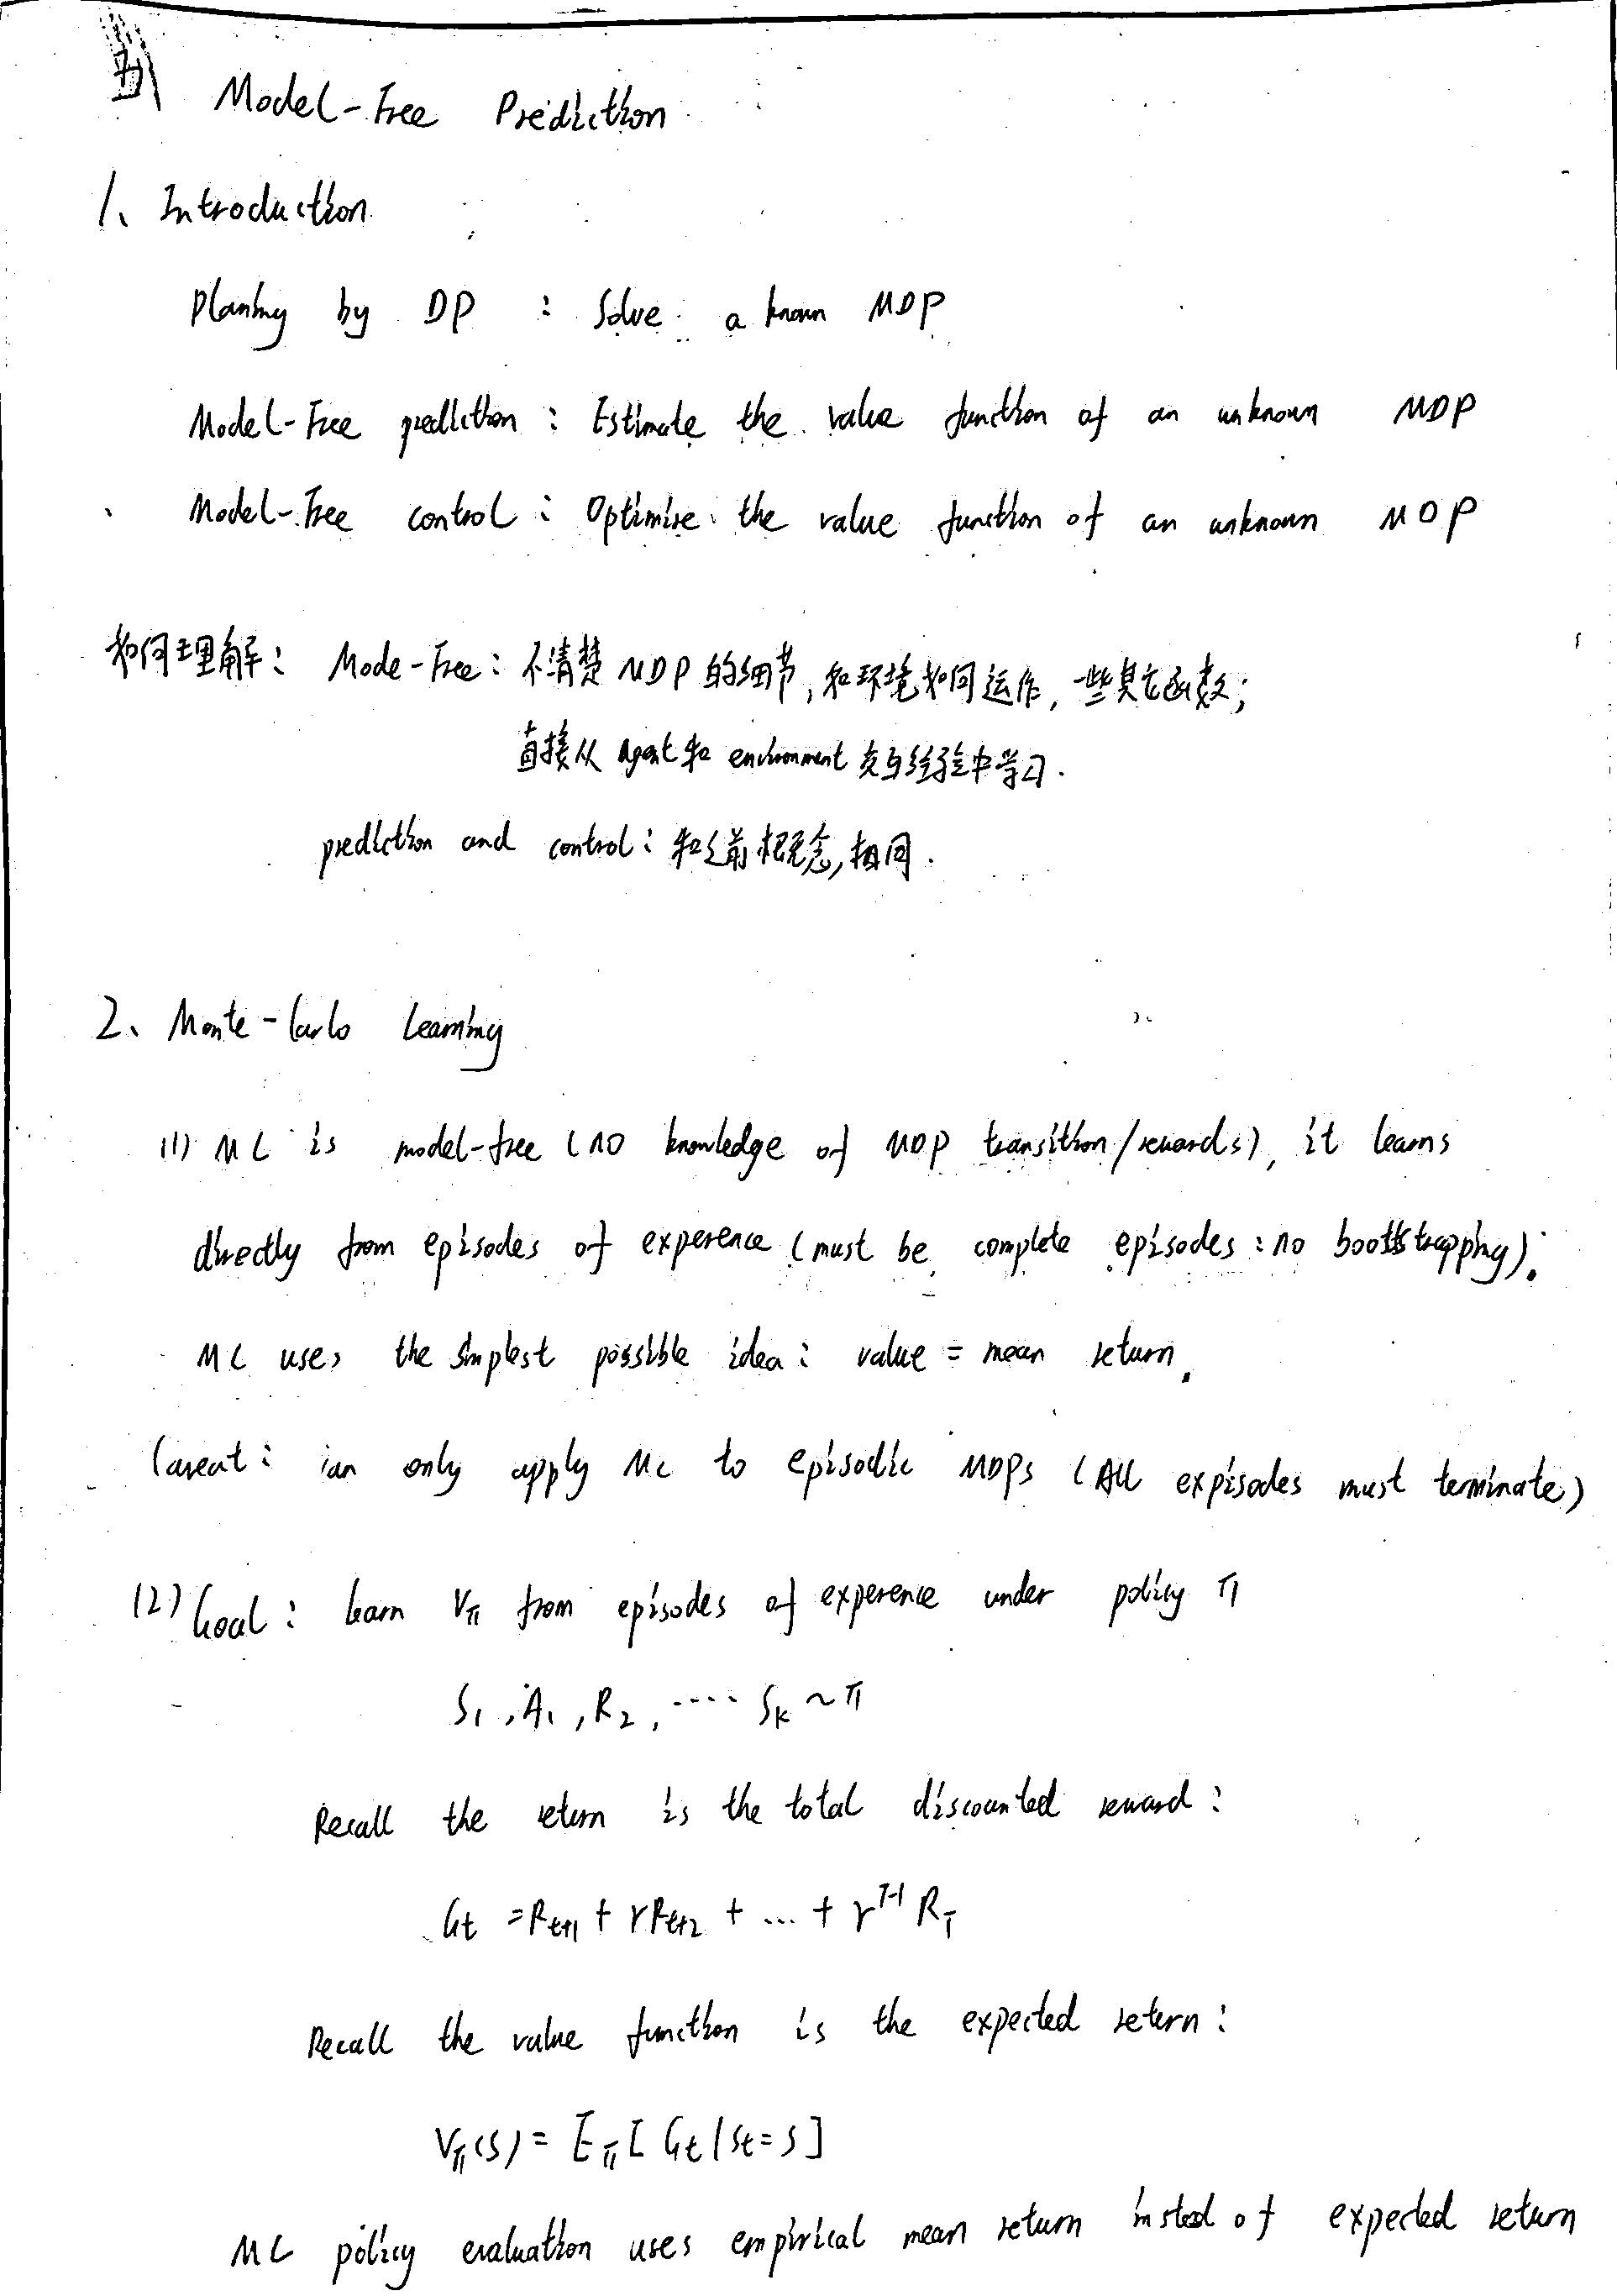 五、 Model-Free Prediction
1、 Introduction
Planing by DP : Solve a known MDP
Model-Free prediction : Estimate the value function of an unknown MDP
Model-Free control : Optimise the value function of an unknown MDP
如何理解: Mode-Free: 不清楚MDP的细节,和环境如何运作,一些其它函数;
直接从agent和environment交互经验中学习.
prediction and control: 和之前概念,相同.
2、 Monte-Carlo Learning
(1) MC is model-free (no knowledge of MDP transition/rewards), it learns
directly from episodes of experence (must be complete episodes : no bootstrapping).
MC uses the simplest possible idea : value = mean return.
Caveat : can only apply MC to episodic MDPs (All expisodes must terminate)
(2) Goal : learn Vπ from episodes of experence under policy π
S₁, A₁, R₂, ···· Sₖ ~ π
Recall the return is the total discounted reward :
Gt = Rt+1 + γRt+2 + ... + γ^T-1 R_T
Recall the value function is the expected retern :
Vπ(s) = Eπ[Gt | St = s]
MC policy evaluation uses empirical mean return insted of expected return